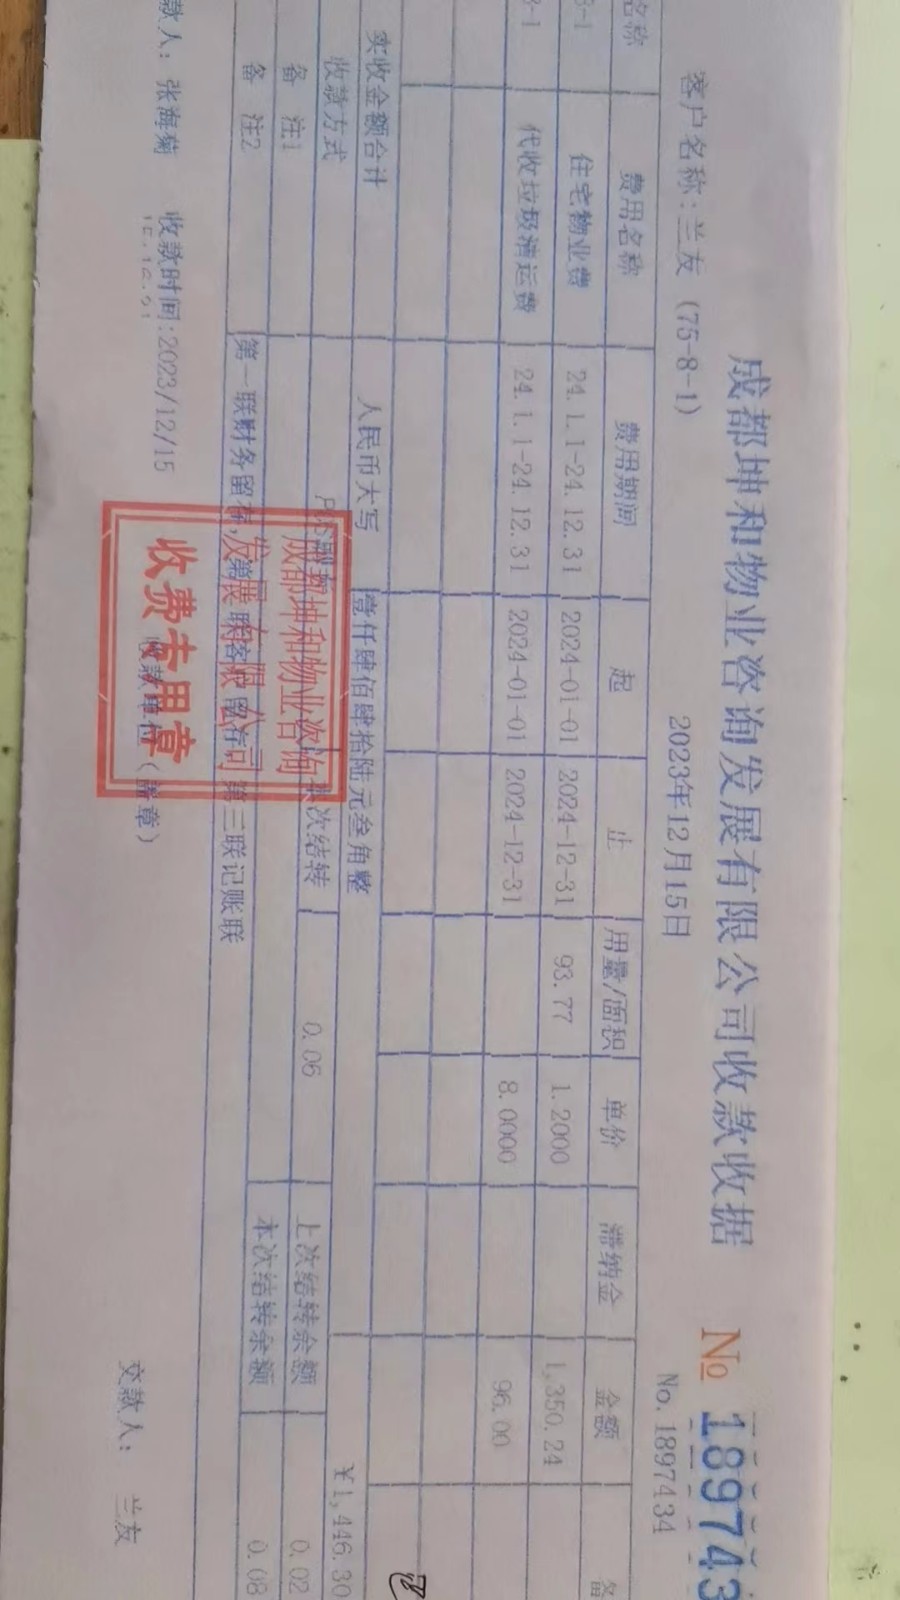 成都坤和物业咨询发展有限公司收款收据
№ 189743
2023年12月15日
No.1897434
客户名称:兰友 (75-8-1)
名称 费用名称 费用期间 起 止 用量/面积 单价 滞纳金 金额 备
3-1 住宅物业费 24.1.1-24.12.31 2024-01-01 2024-12-31 93.77 1.2000 1,350.24
3-1 代收垃圾清运费 24.1.1-24.12.31 2024-01-01 2024-12-31 8.0000 96.00
实收金额合计 人民币大写 壹仟肆佰肆拾陆元叁角整 ¥1,446.30
收款方式 本次结转 0.06 上次结转余额 0.02
备 注1 本次结转余额 0.08
备 注2 第一联财务留存,第二联客户留存 第三联记账联
款人: 张海菊 收款时间:2023/12/15 收款单位(盖章) 交款人: 兰友
15:16:21
成都坤和物业咨询
发展有限公司
收费专用章